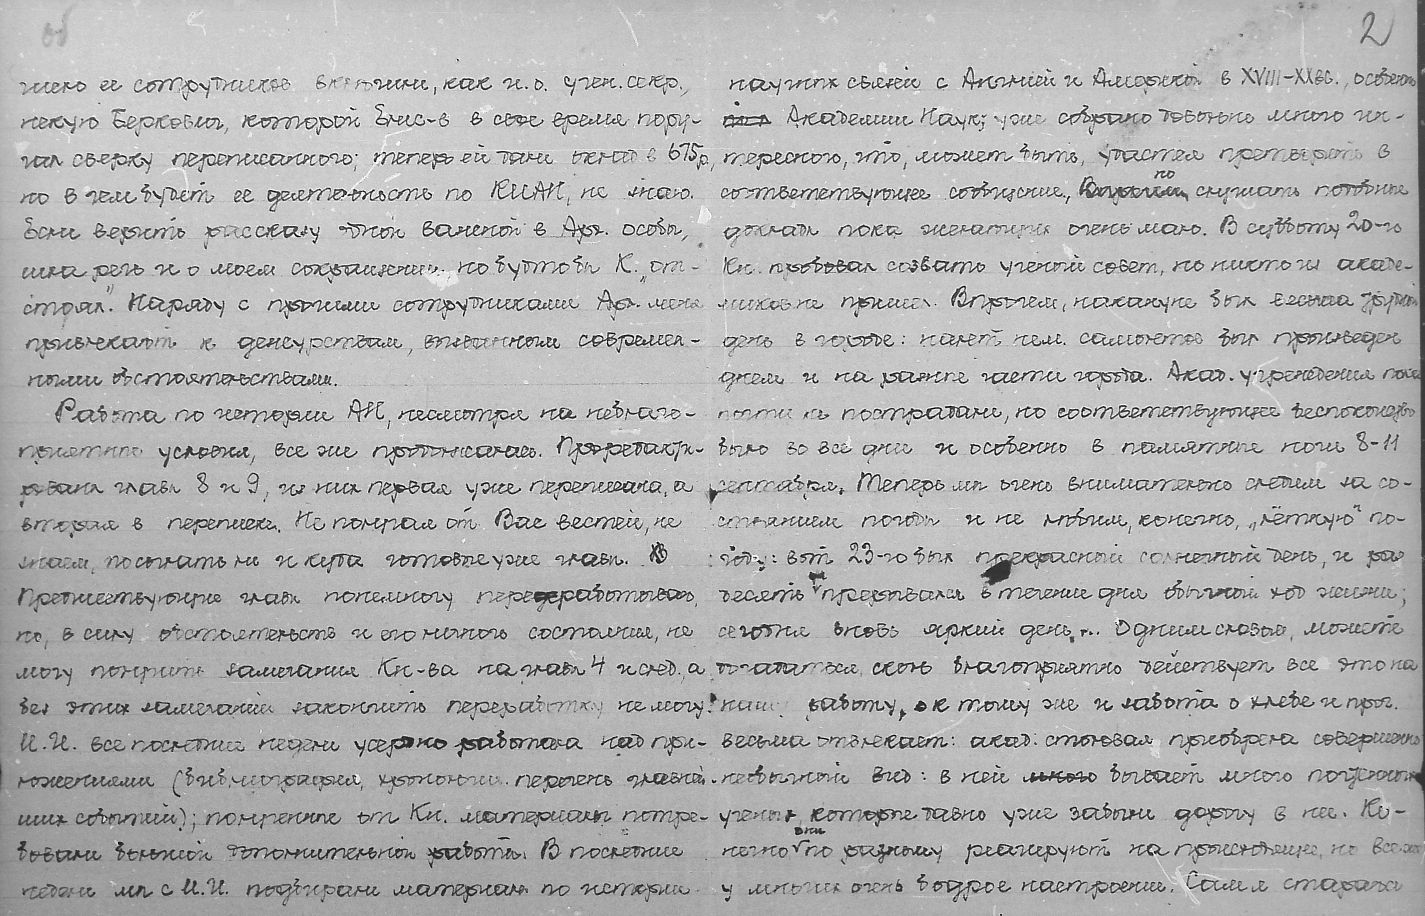 2
число ее сотрудников включили, как и.о. учен. секр.,
некую Беркович, которой Елис-в в свое время пору-
чал сверку переписанного; теперь ей дали оклад в 675р,
но в чем будет ее деятельность по КИАН, не знаю.
Если верить рассказу одной важной в Арх. особы,
шла речь и о моем сокращении, но будто бы К. „от-
стоял". Наряду с прочими сотрудниками Арх. меня
привлекают к дежурствам, вызванным современ-
ными обстоятельствами.
Работа по истории АН, несмотря на неблаго-
приятные условия, все же продолжалась. Проредакти-
рованы главы 8 и 9, из них первая уже переписана, а
вторая в переписке. Не получая от Вас вестей, не
знаем, посылать ли и куда готовые уже главы.
Предшествующие главы понемногу перерабатываю,
но, в силу обстоятельств и его личного состояния, не
могу получить замечания Кн-ва на главы 4 и след., а
без этих замечаний закончить переработку не могу.
И.И. все последние недели усердно работала над при-
ложениями (библиография, хронология, перечень главней-
ших событий); полученные от Кн. материалы потре-
бовали большой дополнительной работы. В последние
недели мы с И.И. подбирали материалы по истории
научных связей с Англией и Америкой в XVIII-XX вв., особенно
Академии Наук; уже собрано довольно много ин-
тересного, что, может быть, удастся претворить в
соответствующее сообщение, но слушать подобные
доклады пока желающих очень мало. В субботу 20-го
Кн. пробовал созвать ученый совет, но никто из акаде-
миков не пришел. Впрочем, накануне был весьма трудный
день в городе: налет нем. самолетов был произведен
днем и на разные части города. Акад. учреждения пока
почти не пострадали, но соответствующее беспокойство
было во все дни и особенно в памятные ночи 8-11
сентября. Теперь мы очень внимательно следим за со-
стоянием погоды и не любим, конечно, „лётную" по-
году: вот 23-го был прекрасный солнечный день, и раз
десять прерывался в течение дня обычный ход жизни;
сегодня вновь яркий день... Одним словом, можете
догадаться, сколь благоприятно действует все это на
нашу работу, а к тому же и забота о хлебе и проч.
весьма отвлекает: акад. столовая приобрела совершенно
необычный вид: в ней бывает много почтенных
ученых, которые давно уже забыли дорогу в нее. Ко-
нечно они по разному реагируют на происходящее, но все же
у многих очень бодрое настроение. Сам я стараюсь